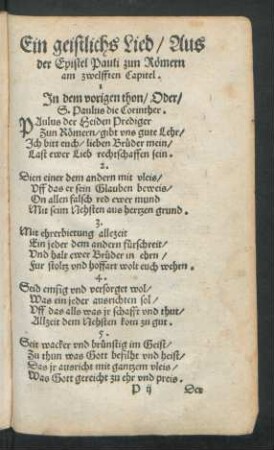 Ein geistlichs Lied / Aus
der Epistel Pauli zum Römern
am zwelfften Capitel.
1
In dem vorigen thon / Oder /
S. Paulus die Corinther.
PAulus der Heiden Prediger
Zun Römern / gibt vns gute Lehr /
Ich bitt euch / lieben Brüder mein /
Last ewer Lieb rechtschaffen sein.
2.
Dien einer dem andern mit vleis /
Vff das er sein Glauben beweis /
On allen falsch red ewer mund
Mit seim Nehsten aus hertzen grund.
3.
Mit ehrerbietung allezeit
Ein jeder dem andern fürschreit /
Vnd halt ewer Brüder in ehrn /
Fur stoltz vnd hoffart wolt euch wehrn.
4.
Seid emsig vnd versorget wol /
Was ein jeder ausrichten sol /
Vff das alls was jr schafft vnd thut /
Allzeit dem Nehsten kom zu gut.
5.
Seit wacker vnd brünstig im Geist /
Zu thun was Gott befilht vnd heist /
Das jr ausricht mit gantzem vleis /
Was Gott gereicht zu ehr vnd preis.
P ij Den